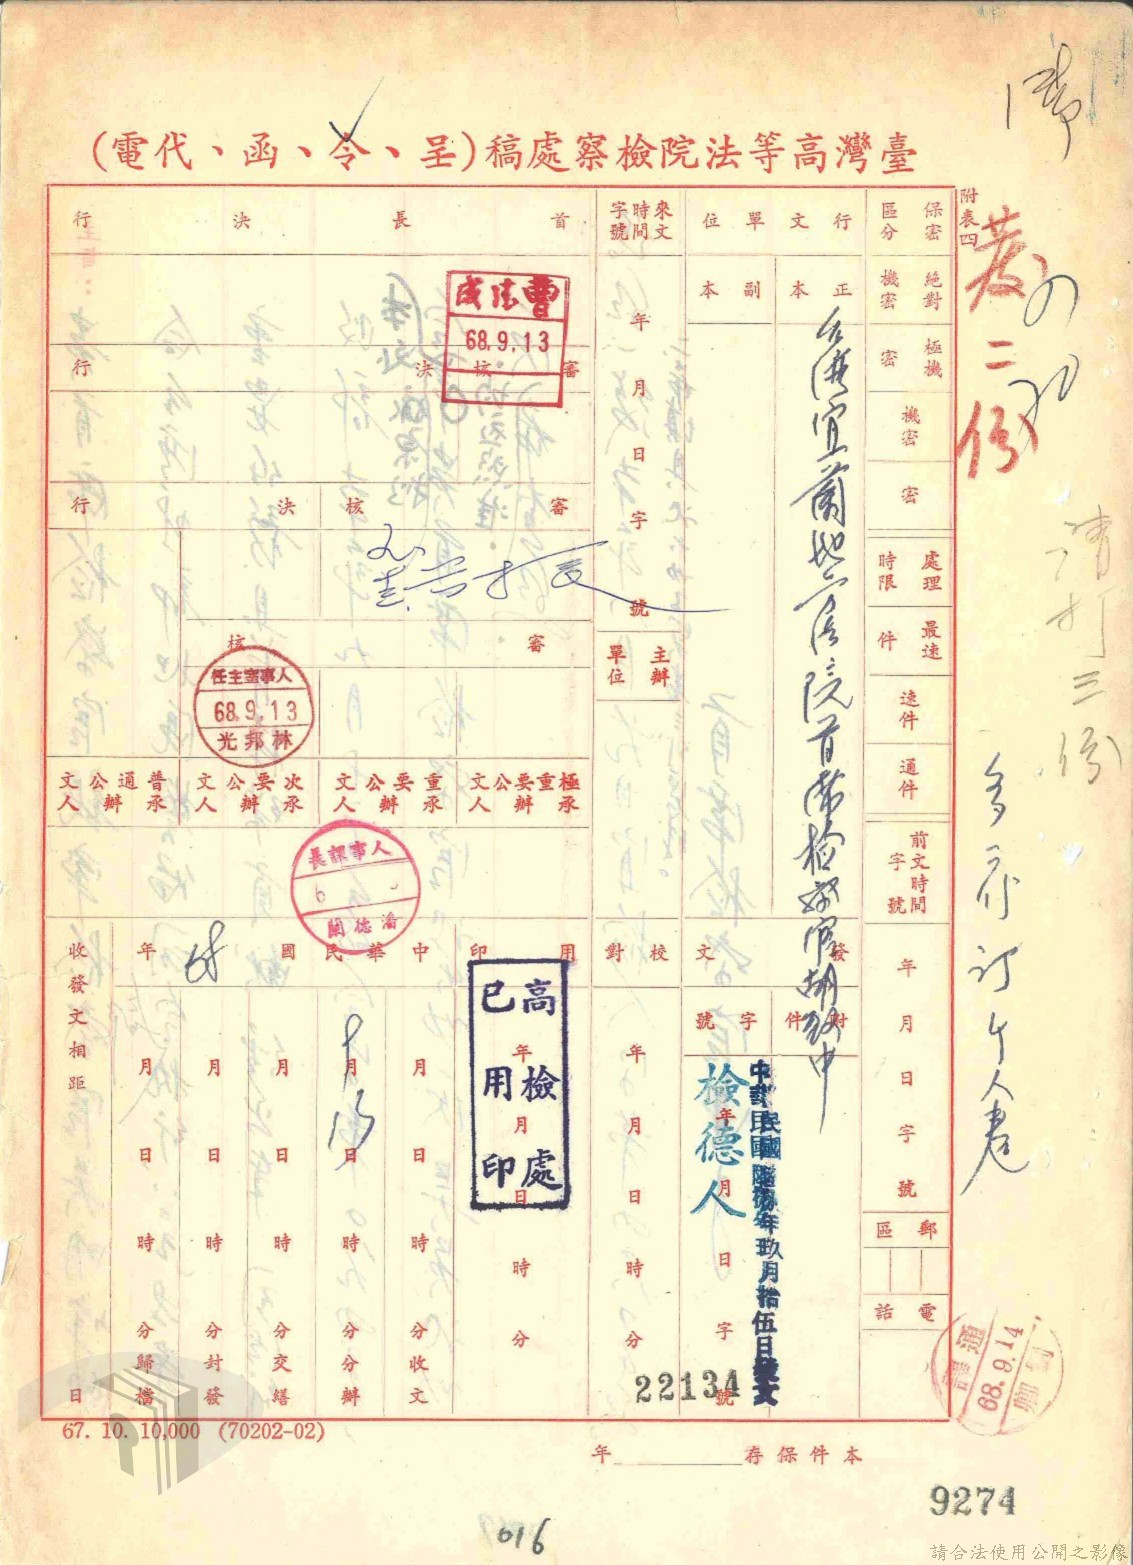 臺灣高等法院檢察處稿(呈、令、函、代電)
附表四
保密區分
絕對機密
極機密
機密
密
處理時限
最速件
速件
通件
前文時間字號
年月日字號
郵區
電話
行文單位
正本
副本
台灣宜蘭地方法院首席檢察官胡
發文
附件
字號
年月日字號
中華民國陸捌年玖月拾伍日發文
檢德人
22134
來文時間字號
年月日字號
主辦單位
校對
年月日時分
首長決行
曹
68.9.13
審核決行
審核決行
審核
人事室主任
68.9.13
林邦光
極重要公文承辦人
重要公文承辦人
次要公文承辦人
普通公文承辦人
人事課長
潘德蘭
用印
年月日時分
高檢處
已用印
中華民國68年
月日時分收文
9月13日時分分辦
月日時分交繕
月日時分封發
月日時分歸檔
收發文相距
日
67. 10. 10,000 (70202-02)
本件保存 年
發二份
請打三份
68.9.14
9274
016
請合法使用公開之影像